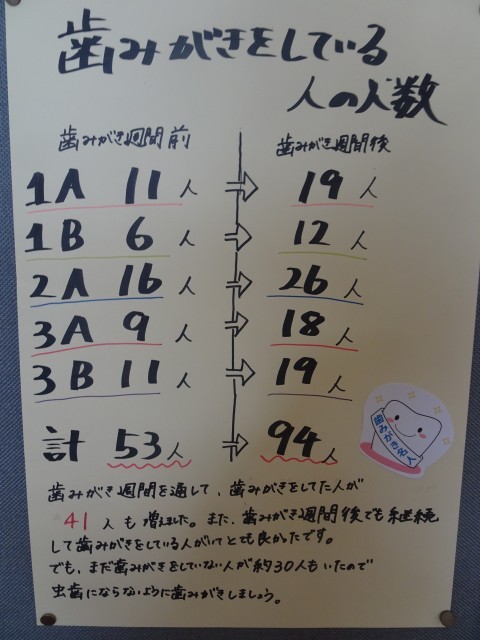 歯みがきをしている
人の人数
歯みがき週間前
歯みがき週間後
1A 11人 ⇨ 19人
1B 6人 ⇨ 12人
2A 16人 ⇨ 26人
3A 9人 ⇨ 18人
3B 11人 ⇨ 19人
計 53人 ⇨ 94人
歯みがき名人
歯みがき週間を通して、歯みがきをしてた人が
41人も増えました。また、歯みがき週間後でも継続
して歯みがきをしている人がいてとても良かったです。
でも、まだ歯みがきをしていない人が約30人もいたので
虫歯にならないように歯みがきしましょう。